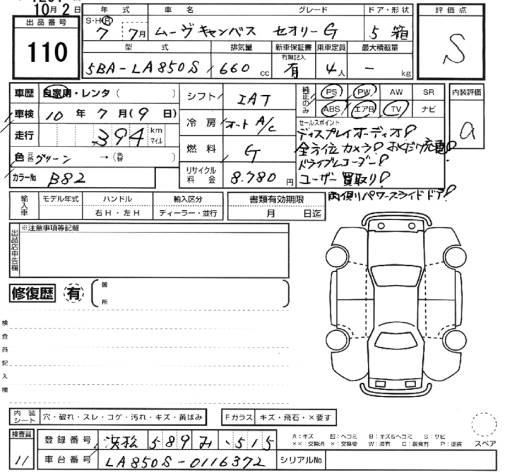 10月2日
出品番号 110
年式 車名 グレード ドア・形状 評価点
S・H・R 7年 7月 ムーヴキャンバス セオリーG 5 箱 S
型式 排気量 新車保証書 乗車定員 最大積載量
有無記入
5BA-LA850S 660cc 有 4人 - kg
車歴 自家用・レンタ( )
車検 10年7月(9日)
走行 394 km マイル
色 グリーン → (替 )
カラーNo. B82
シフト IAT
冷房 オートA/C
燃料 G
リサイクル料金 8,780円
純正のみ PS PW AW SR
ABS エアB TV ナビ
内装評価 a
セールスポイント
ディスプレイオーディオ!
全方位カメラ! おくだけ充電!
ドライブレコーダー!
ユーザー買取り!
両側パワースライドドア!
輸入車 モデル年式 ハンドル 輸入区分 書類有効期限
右H・左H ディーラー・並行 月 日迄
出品店申告欄 ※注意事項等記載
修復歴 有 箇所
検査員記入欄
内装シート 穴・破れ・スレ・コゲ・汚れ・キズ・黄ばみ Fガラス キズ・飛石・×要す
検査員 11
登録番号 浜松 589 わ ・515
車台番号 LA850S-0116372 シリアルNo.
スペア